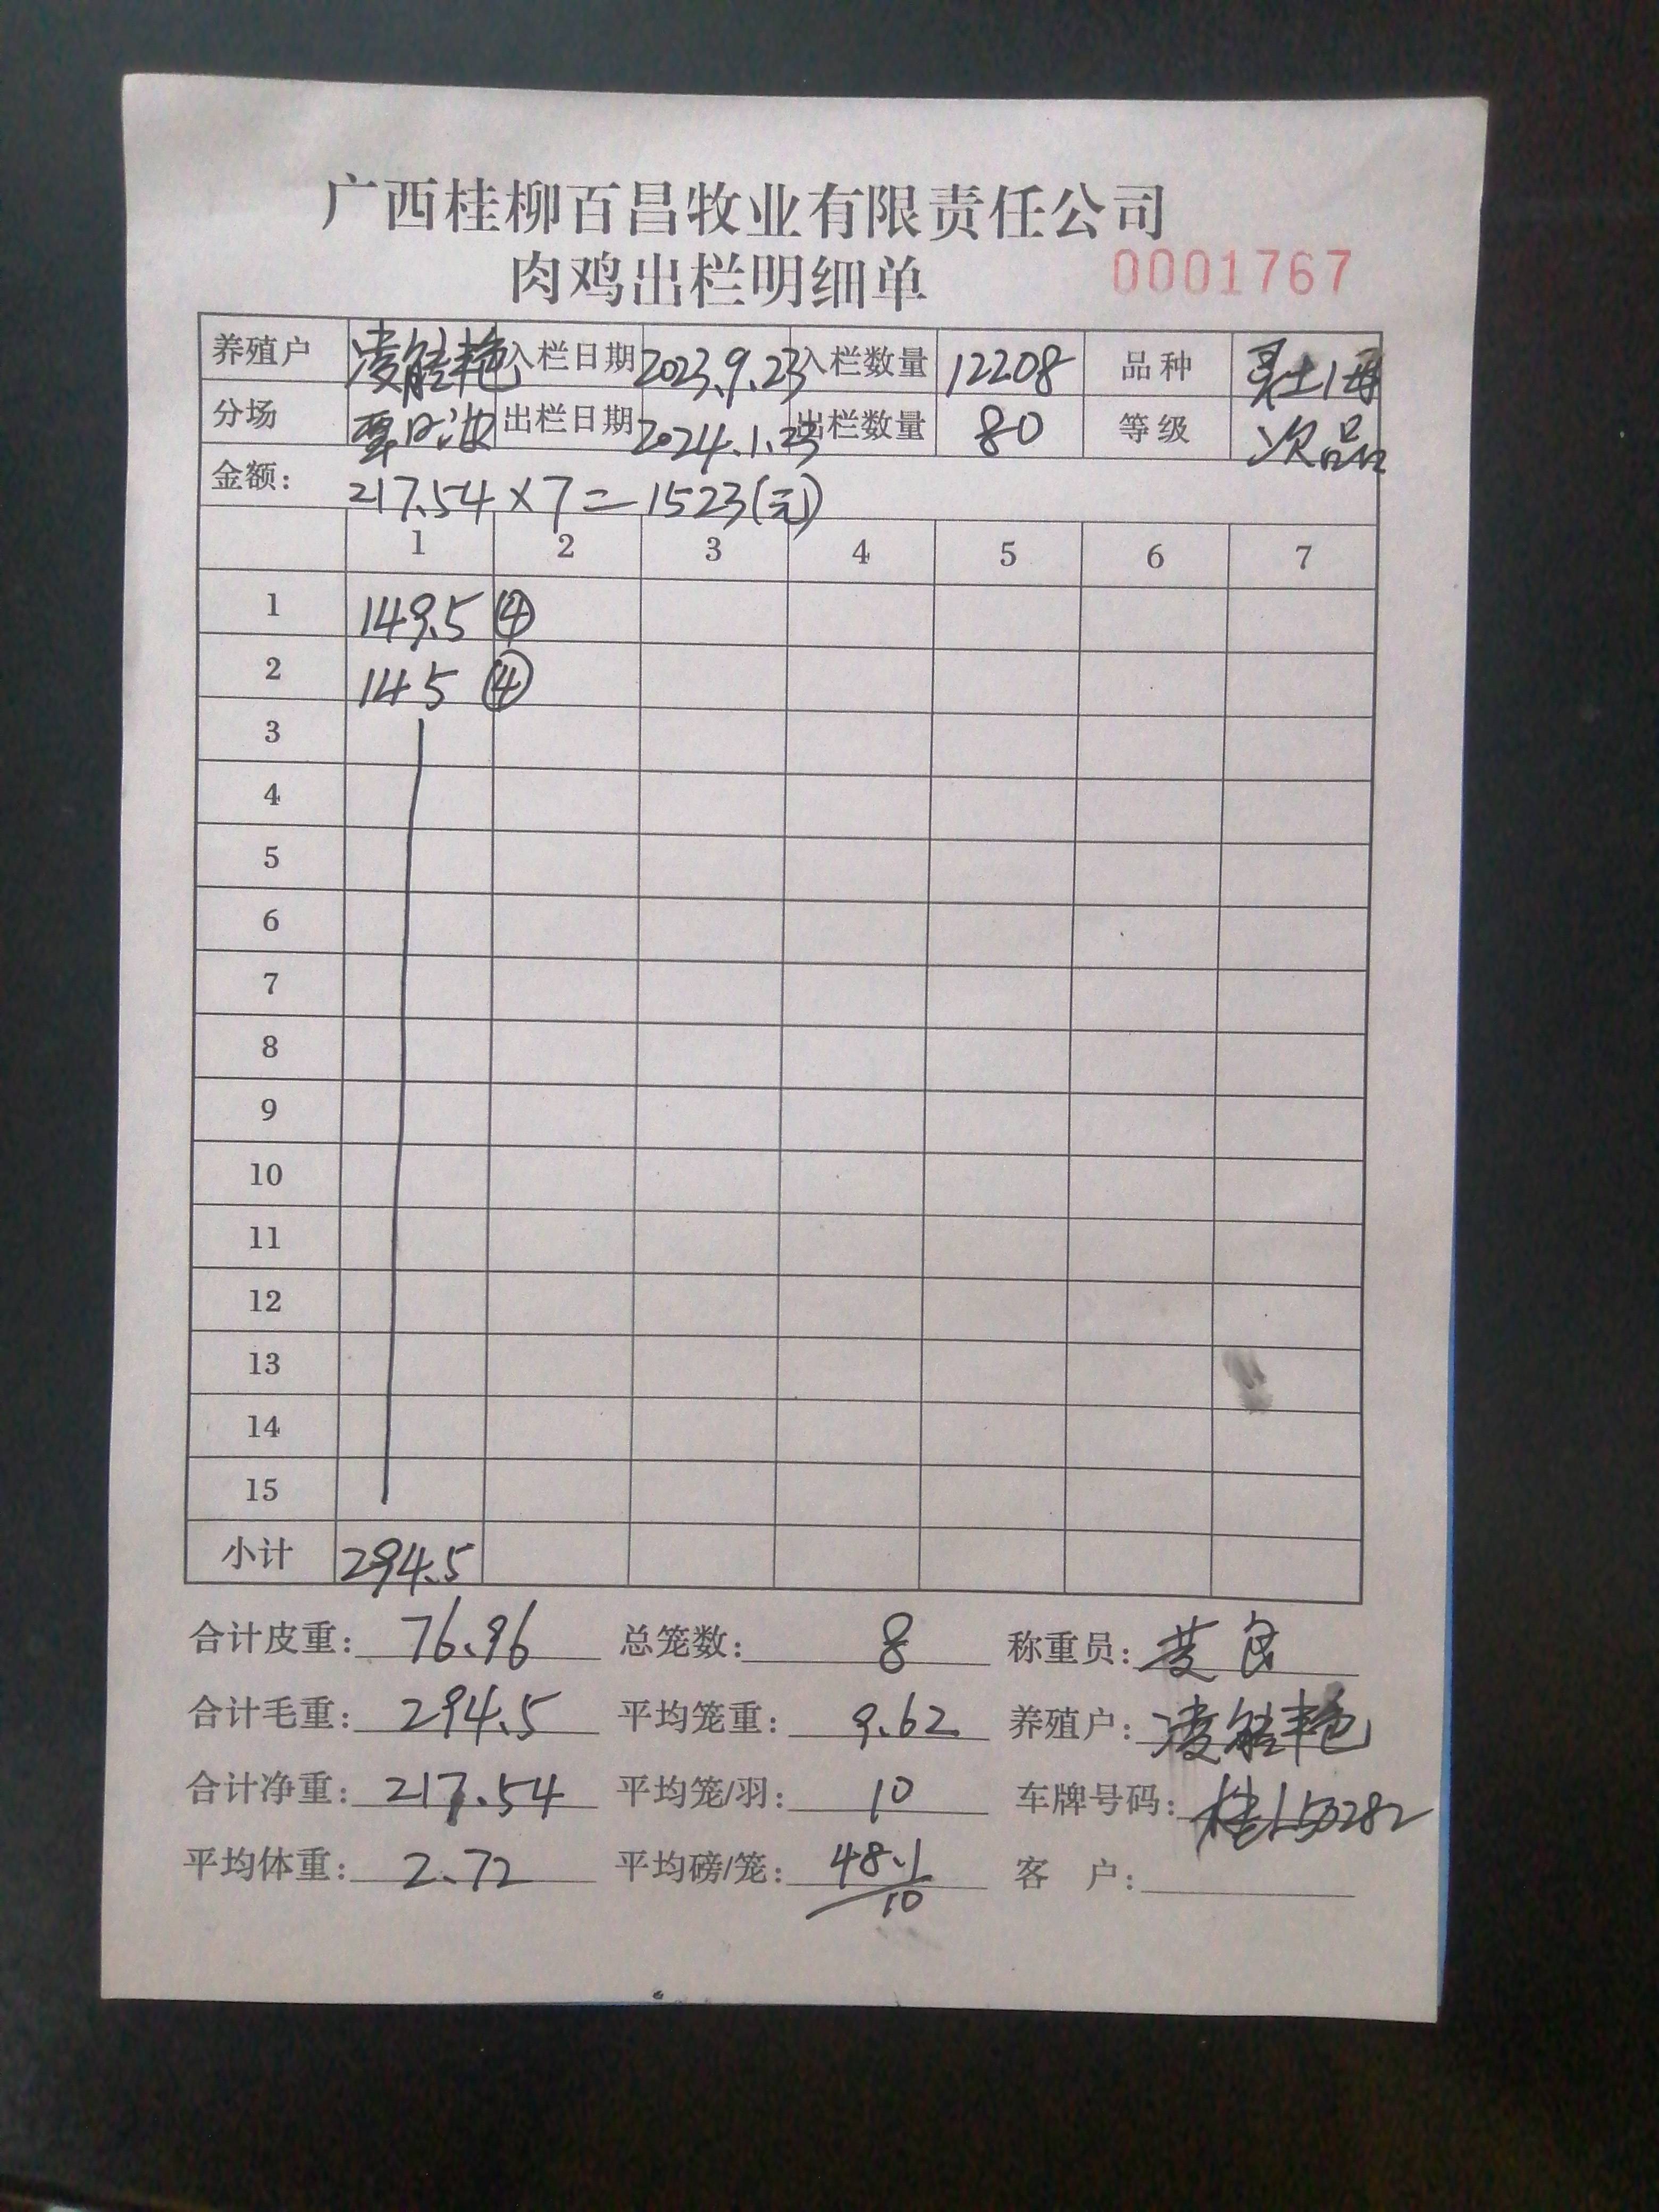 广西桂柳百昌牧业有限责任公司
肉鸡出栏明细单 0001767
养殖户 凌能艳 入栏日期 2023.9.23 入栏数量 12208 品种
分场 出栏日期 2024.1.23 出栏数量 80 等级 次品
金额: 217.54×7=1523(元)
1 2 3 4 5 6 7
1 149.5 ④
2 145 ④
3
4
5
6
7
8
9
10
11
12
13
14
15
小计 294.5
合计皮重: 76.96 总笼数: 8 称重员:
合计毛重: 294.5 平均笼重: 9.62 养殖户: 凌能艳
合计净重: 217.54 平均笼/羽: 10 车牌号码:
平均体重: 2.72 平均磅/笼: 48.1/10 客户: